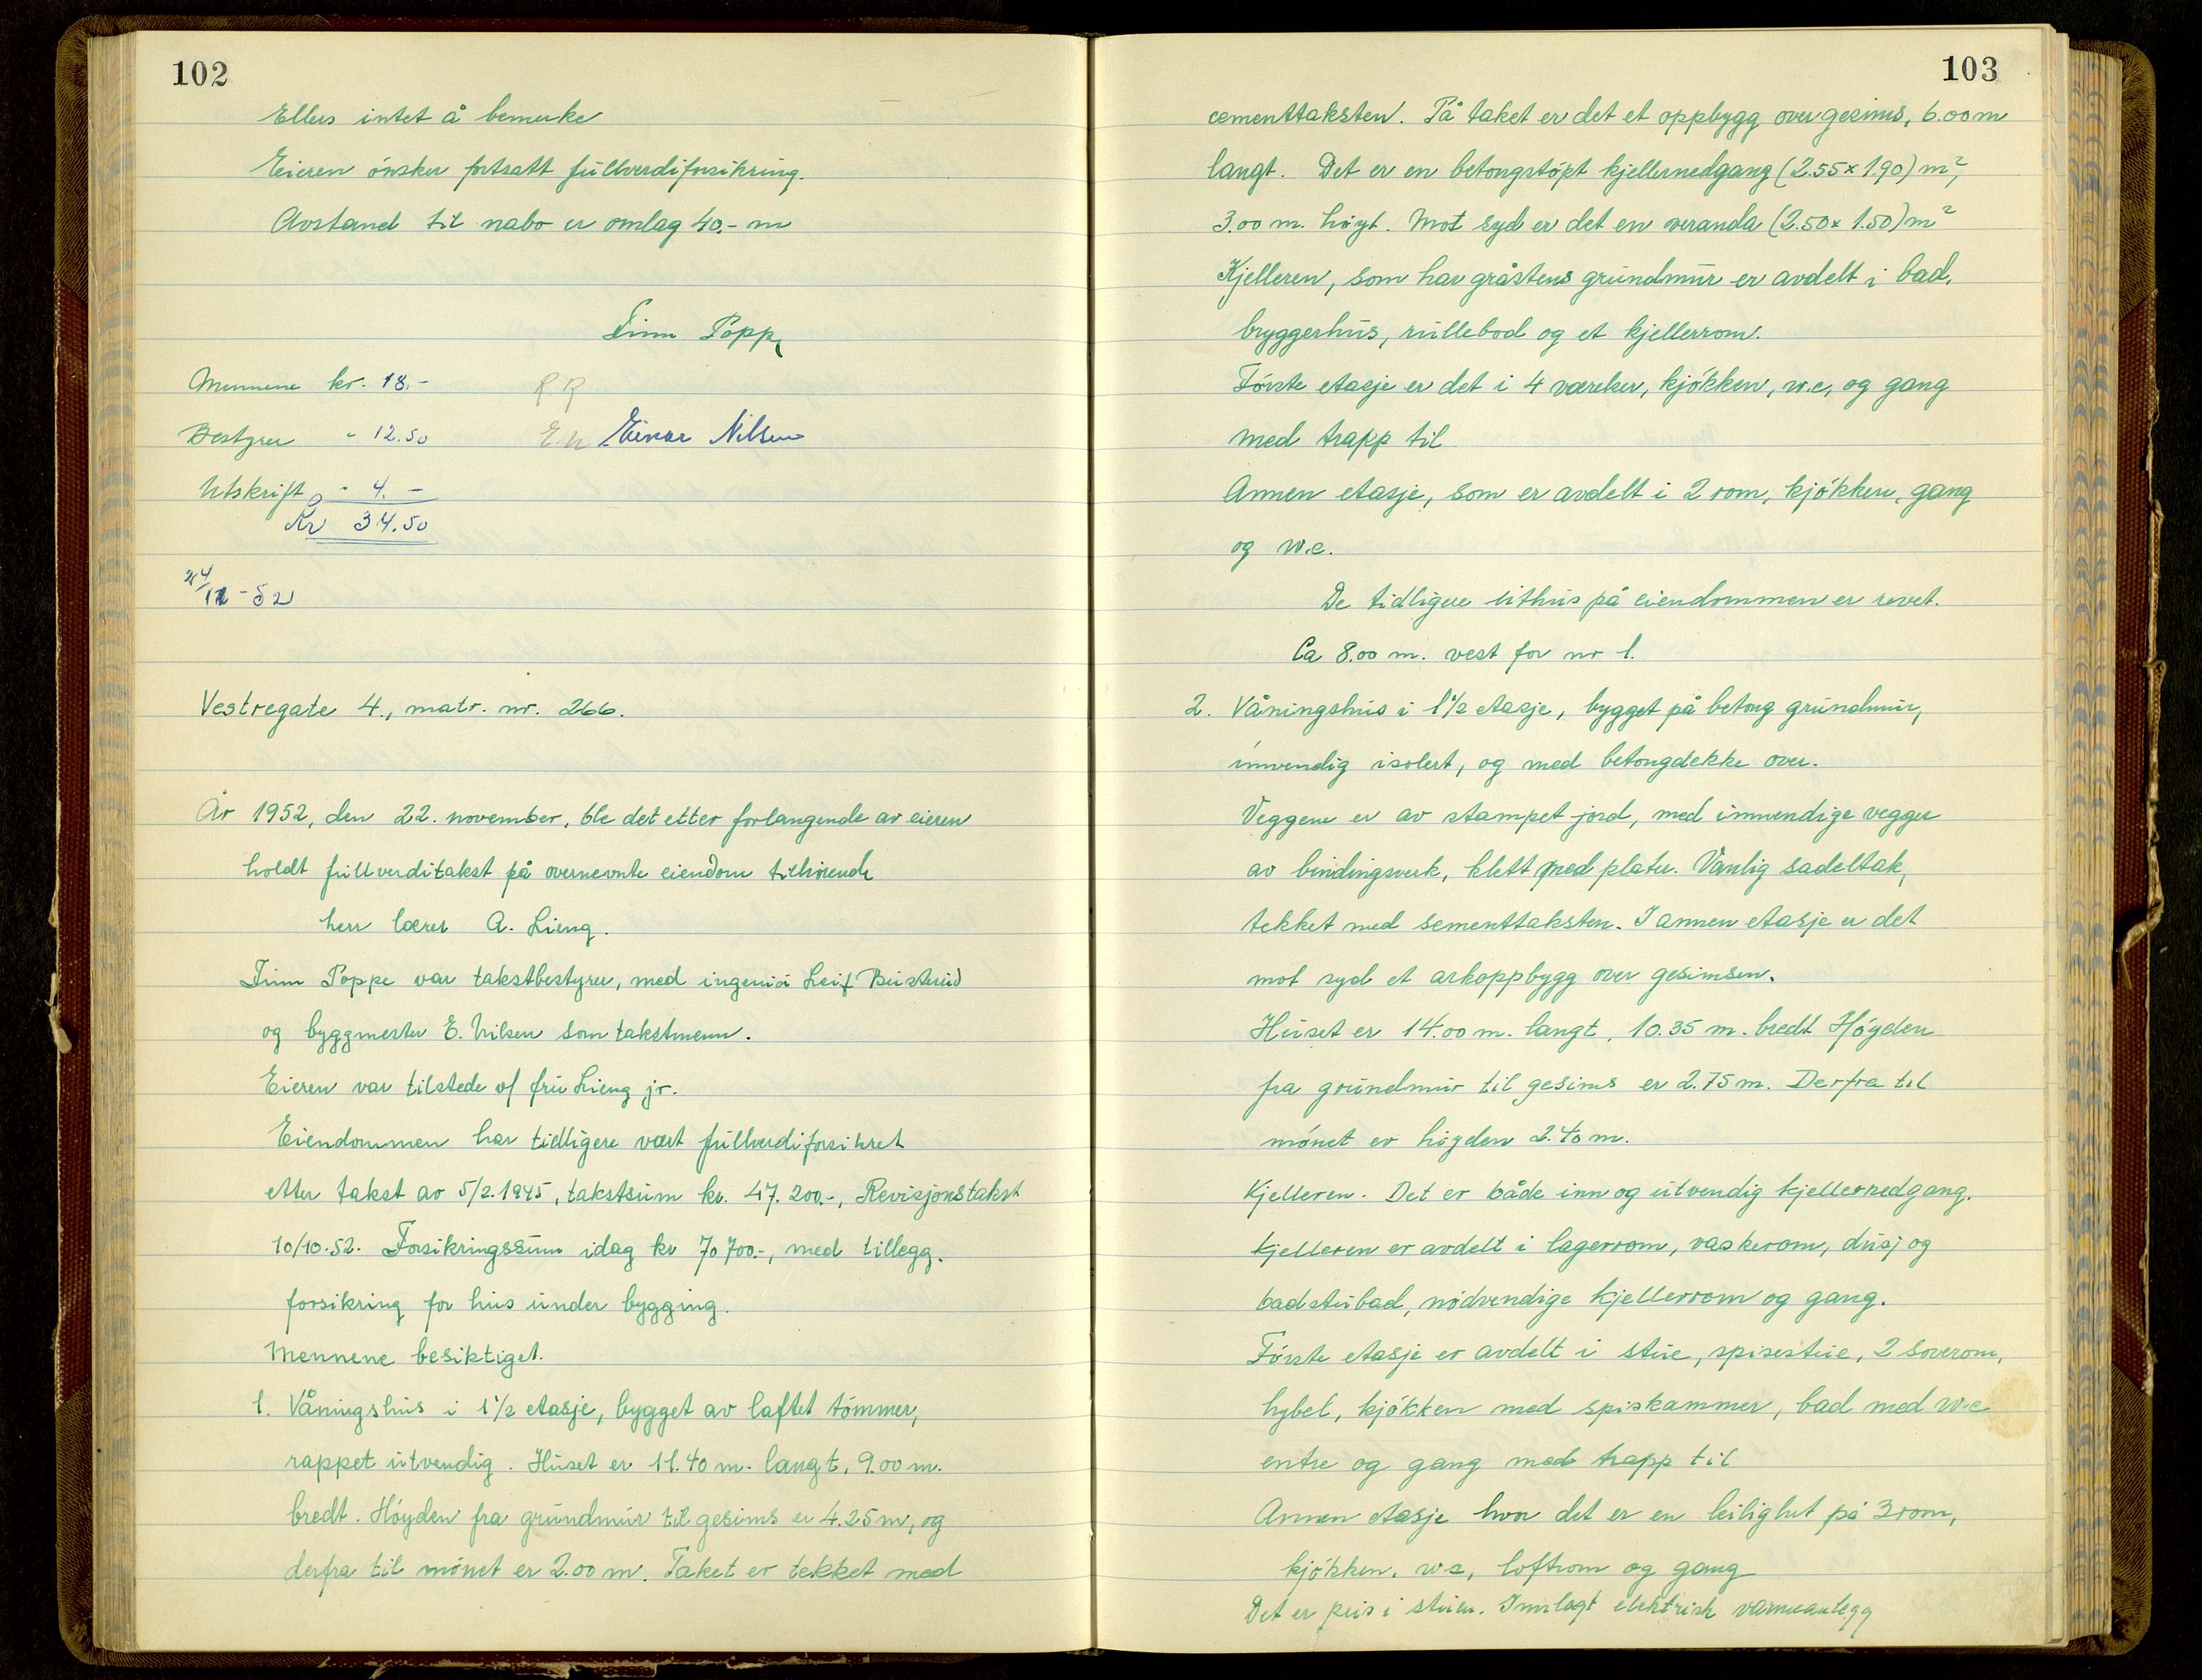 102
Ellers intet å bemerke
Eieren ønsker fortsatt fullverdiforsikring.
Avstand til nabo er omlag 40.- m
Finn Poppe
Mennene kr. 18.-
R R
Bestyrer " 12.50
E N Einar Nilsen
Utskrift " 4.-
Kr 34.50
24/11-52
Vestregate 4., matr. nr. 266.
År 1952, den 22. november, ble det etter forlangende av eieren
holdt fullverditakst på overnevnte eiendom tilhørende
herr lærer A. Lieng.
Finn Poppe var takstbestyrer, med ingeniør Leif Busterud
og byggmester E. Nilsen som takstmenn.
Eieren var tilstede v/ fru Lieng jr.
Eiendommen har tidligere vært fullverdiforsikret
etter takst av 5/2.1945, takstsum kr. 47.200.-, Revisjonstakst
10/10.52. Forsikringssum idag kr 70 700.-, med tillegg.
forsikring for hus under bygging.
Mennene besiktiget.
1. Våningshus i 1 1/2 etasje, bygget av laftet tømmer,
rappet utvendig. Huset er 11.40 m. langt, 9.00 m.
bredt. Høyden fra grundmur til gesims er 4.25 m, og
derfra til mønet er 2.00 m. Taket er tekket med
103
cementtaksten. På taket er det et oppbygg over gesims, 6.00 m
langt. Det er en betongstøpt kjellernedgang (2.55 x 1.90) m²,
3.00 m. høyt. Mot syd er det en veranda (2.50 x 1.50) m²
Kjelleren, som har gråstens grundmur er avdelt i bad,
bryggerhus, rullebod og et kjellerrom.
Første etasje er det i 4 værelser, kjøkken, w.c, og gang
med trapp til
Annen etasje, som er avdelt i 2 rom, kjøkken, gang
og w.c.
De tidligere uthus på eiendommen er revet.
Ca 8.00 m. vest for nr 1.
2. Våningshus i 1 1/2 etasje, bygget på betong grundmur,
innvendig isolert, og med betongdekke over.
Veggene er av stampet jord, med innvendige vegger
av bindingsverk, klett med plater. Vanlig sadeltak,
tekket med sementtaksten. I annen etasje er det
mot syd et arkoppbygg over gesimsen.
Huset er 14.00 m. langt, 10.35 m. bredt Høyden
fra grundmur til gesims er 2.75 m. Derfra til
mønet er høyden 2.40 m.
Kjelleren. Det er både inn og utvendig kjellernedgang.
Kjelleren er avdelt i lagerrom, vaskerom, dusj og
badstubad, nødvendige kjellerrom og gang.
Første etasje er avdelt i stue, spisestue, 2 soverom,
hybel, kjøkken med spiskammer, bad med w.c
entre og gang med trapp til
Annen etasje hvor det er en leilighet på 3 rom,
kjøkken, w c, loftrom og gang
Det er peis i stuen. Innlagt elektrisk varmeanlegg